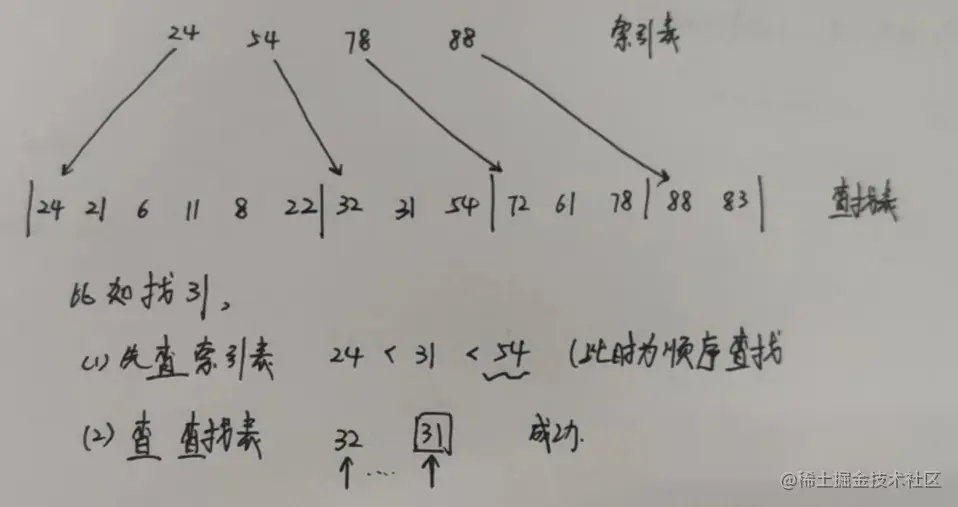 24 54 78 88 索引表
|24 21 6 11 8 22|32 31 54|72 61 78|88 83| 查找表
比如找31。
(1) 先查索引表 24 < 31 < 54 (此时为顺序查找
(2) 查 查找表 32 .... 31 成功.
@稀土掘金技术社区